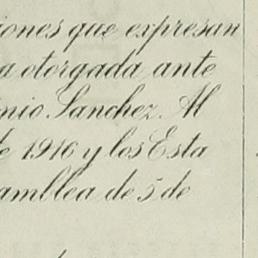 iones que expresan
a otorgada ante
nio Sanchez. Al
e 1946 y los Esta
amblea de 5 de